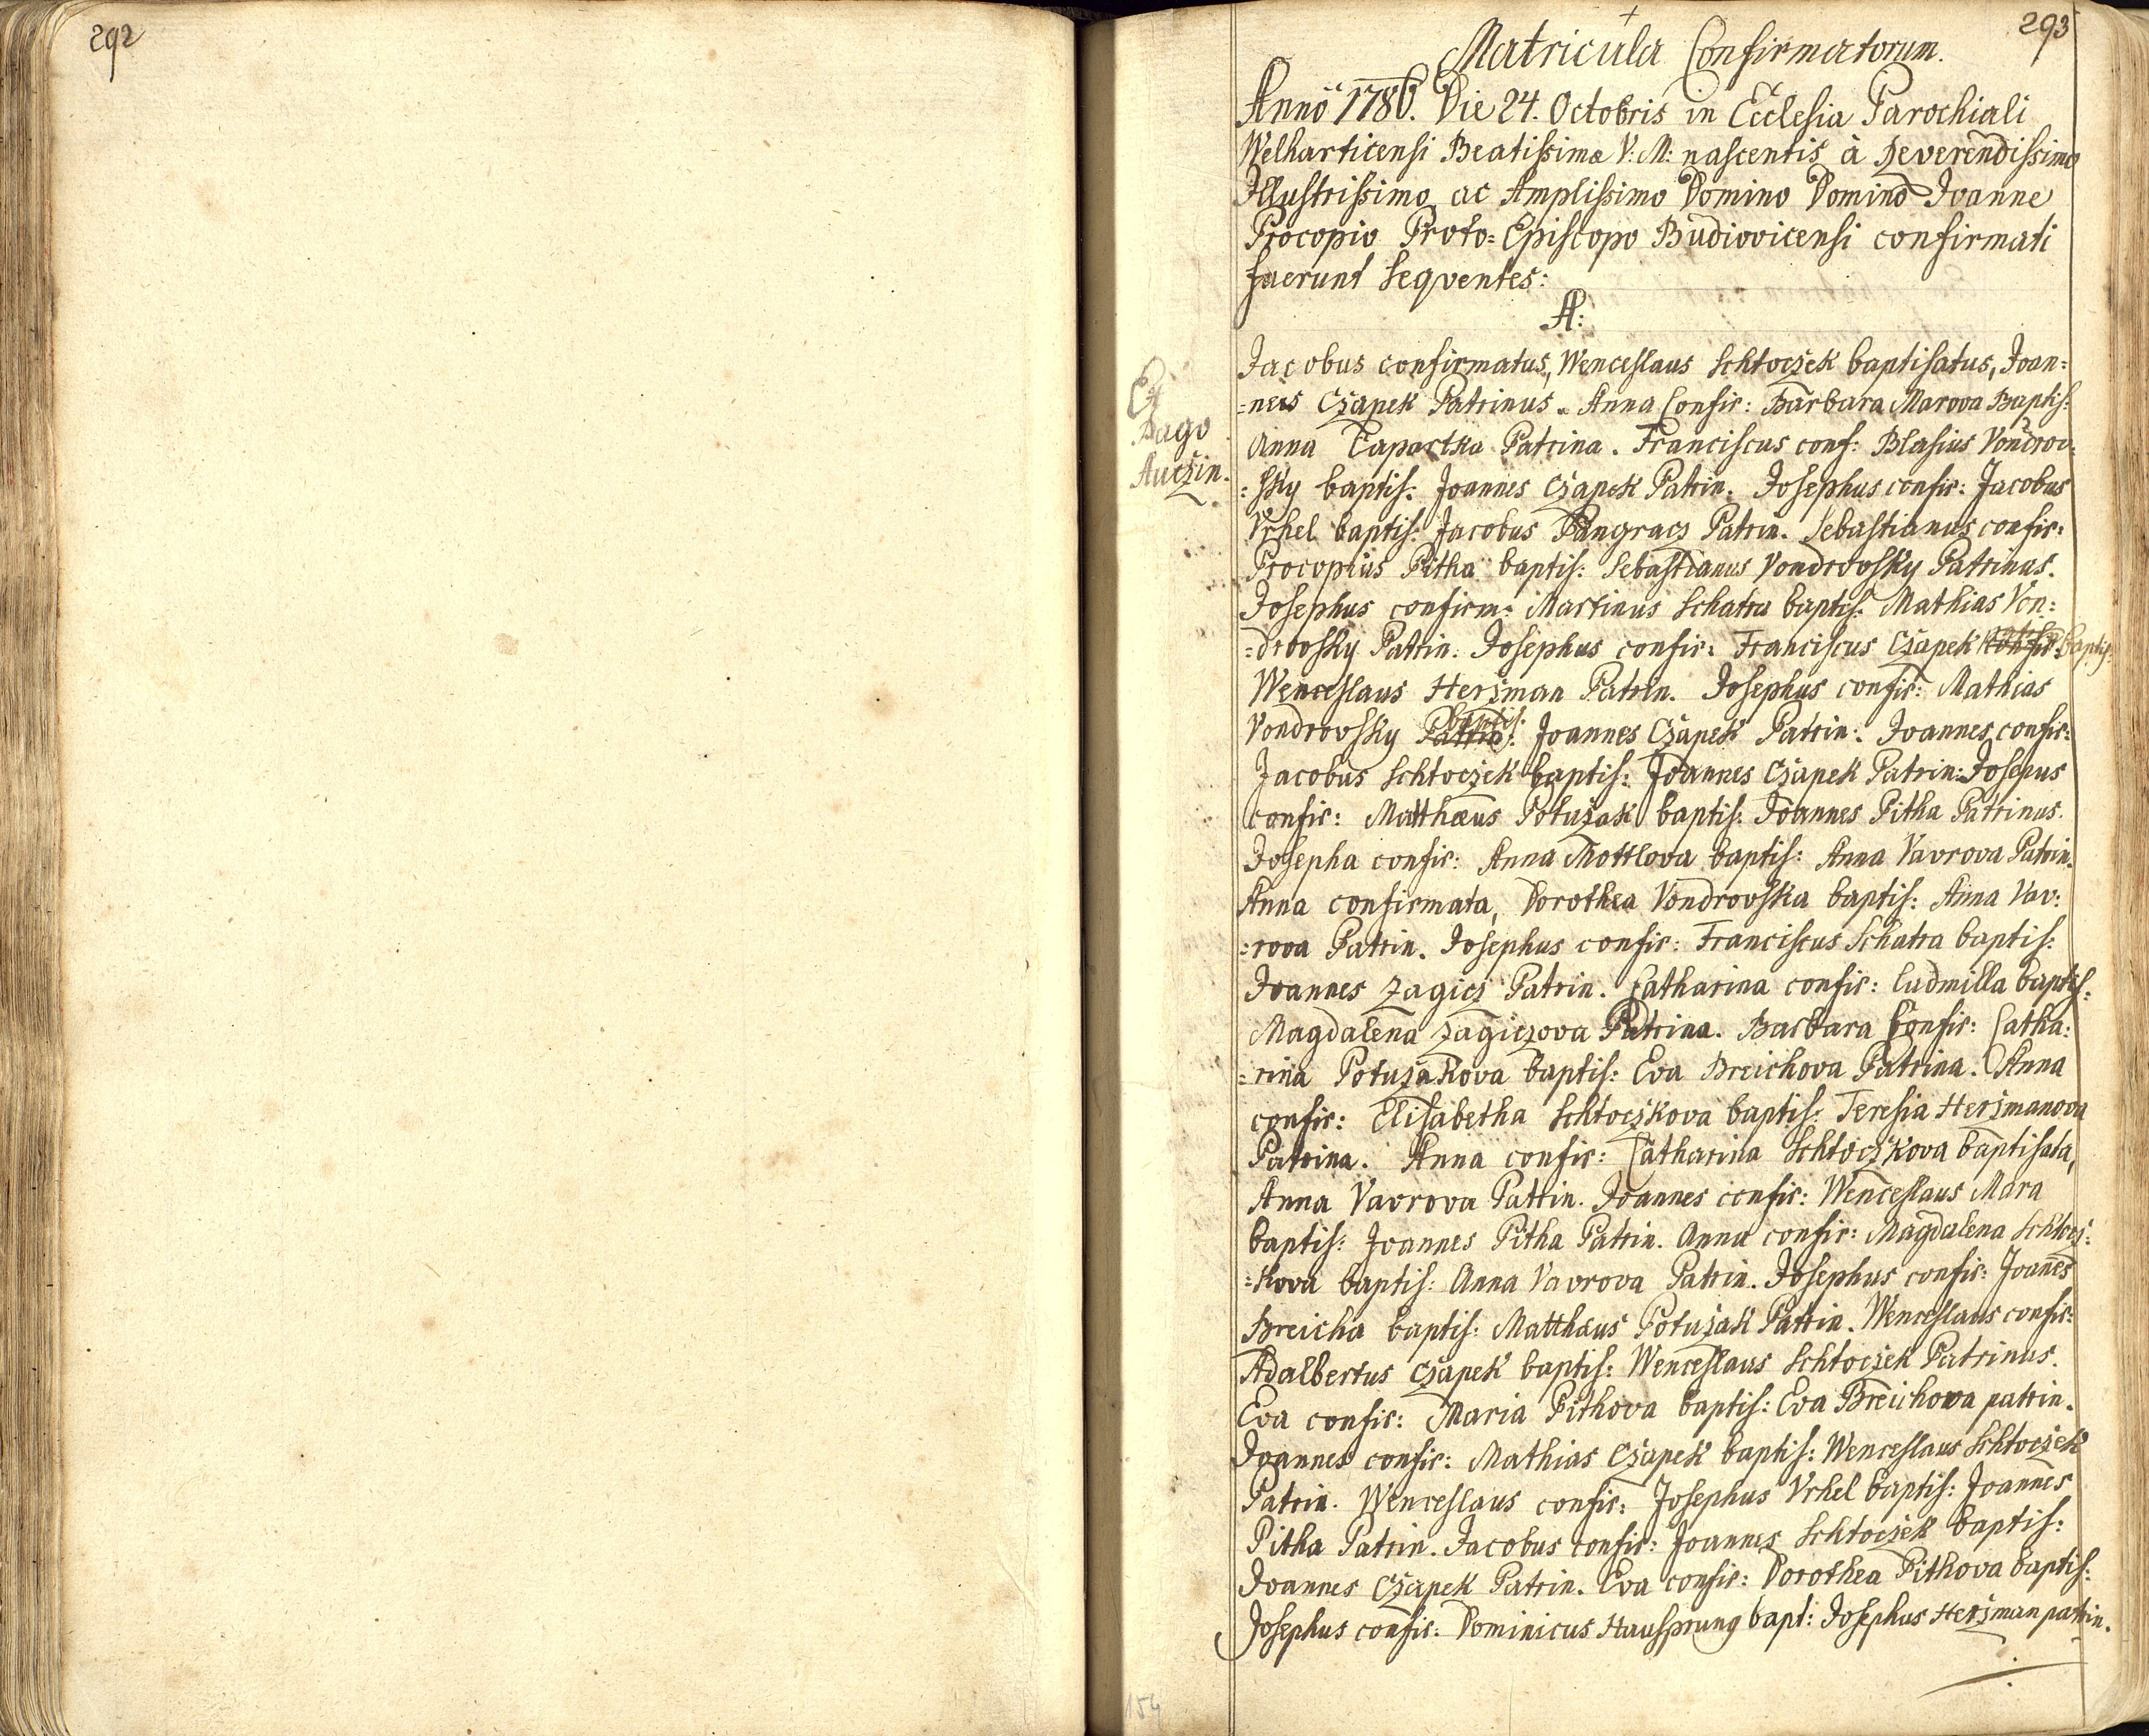 292
293
Matricula Confirmatorum.
Anno 1786. Die 24. Octobris in Ecclesia Parochiali
Welharticensi Beatissimæ V: M: nascentis à Reverendissimo
Illustrissimo ac Amplissimo Domino Domino Joanne
Procopio Proto=Episcopo Budiovicensi confirmati
fuerunt sequentes:
A:
Ex
Pago
Auczin.
Jacobus confirmatus, Wenceslaus Schtoczek baptisatus, Joan=
=nes Czapek Patrinus. Anna Confir: Barbara Marova Baptis:
Anna Patrina. Franciscus conf: Blasius Vondrov=
=sky baptis: Joannes Czapek Patrin. Josephus confir: Jacobus
Vrhel baptis: Jacobus Pangracz Patrin. Sebastianus confir:
Procopius Pitha baptis: Sebastianus Vondrovsky Patrinus.
Josephus confirm: Martinus Schatra baptis: Mathias Von=
=drovsky Patrin: Josephus confir: Franciscus Czapek confir: baptis:
Wenceslaus Herzman Patrin. Josephus confir: Mathias
Vondrovsky Patrin: baptis: Joannes Czapek Patrin: Joannes confir:
Jacobus Schtoczek baptis: Joannes Czapek Patrin: Josepus
confir: Matthæus Potuzak baptis: Joannes Pitha Patrinus.
Josepha confir: Anna Mottlova baptis: Anna Vavrova Patrin.
Anna confirmata, Dorothea Vondrovska baptis: Anna Vav=
=rova Patrin. Josephus confir: Franciscus Schatra baptis:
Joannes Zagicz Patrin. Catharina confir: Ludmilla baptis:
Magdalena Zagiczova Patrina. Barbara Confir: Catha=
=rina Potuzakova baptis: Eva Breichova Patrina. Anna
confir: Elisabetha Schtoczkova baptis: Teresia Herzmanova
Patrina. Anna confir: Catharina Schtoczkova baptisata,
Anna Vavrova Patrin. Joannes confir: Wenceslaus Mara
baptis: Joannes Pitha Patrin. Anna confir: Magdalena Schtocz=
=kova baptis: Anna Vavrova Patrin. Josephus confir: Joanes
Breicha baptis: Matthæus Potuzak Patrin. Wenceslaus confir:
Adalbertus Czapek baptis: Wenceslaus Schtoczek Patrinus.
Eva confir: Maria Pithova baptis: Eva Breichowa patrin.
Joannes confir: Mathias Czapek baptis: Wenceslaus Schtoczek
Patrin. Wenceslaus confir: Josephus Vrhel baptis: Joannes
Pitha Patrin. Jacobus confir: Joannes Schtoczek baptis:
Joannes Czapek Patrin. Eva confir: Dorothea Pithova baptis:
Josephus confir: Dominicus Hausprung bapt: Josephus Herzman patrin.
154